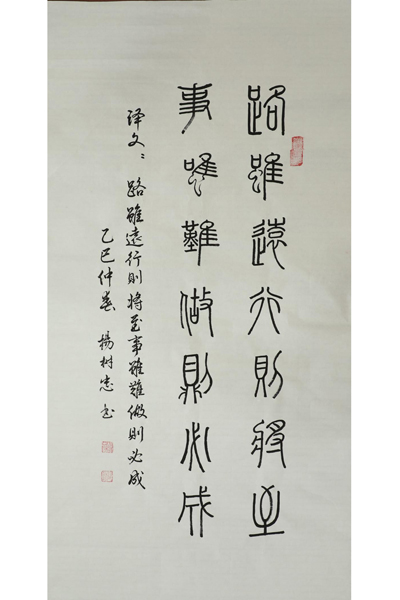 路雖遠行則將至
事雖難做則必成
译文：路雖遠行則將至事雖難做則必成
乙巳仲春 楊树忠书